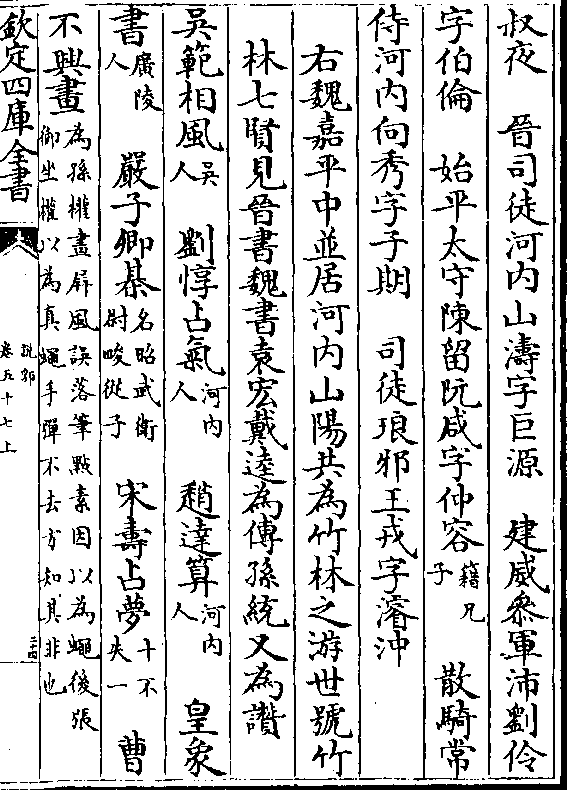 叔夜　晉司徒河内山濤字巨源　建威叅軍沛劉伶
字伯倫　始平太守陳留阮咸字仲容籍兄子　散騎常
侍河内向秀字子期　司徒琅邪王戎字濬沖
右魏嘉平中並居河内山陽共為竹林之游世號竹
林七賢見晉書魏書袁宏戴逵為傳孫統又為讚
吳範相風吳人　劉惇占氣河内人　趙達算河内人　皇象
書廣陵人　嚴子卿棊名昭武衛尉畯從子　宋壽占夢十不失一　曹
不興畫為孫權畫屏風誤落筆㸃素因以為蠅後張御坐權以為真蠅手彈不去方知其非也
欽定四庫全書
說郛
卷五十七上
二十四